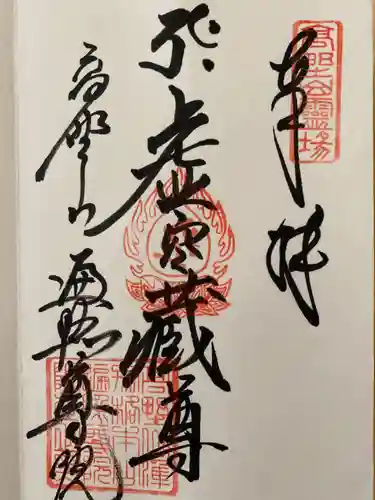 奉拝
高野山霊場
虚空蔵尊
高野山
遍照尊院